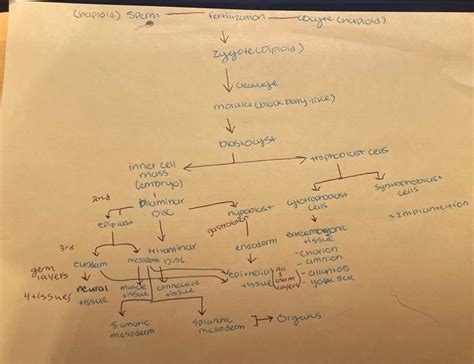 (haploid) sperm — fertilization — oocyte (haploid)
zygote (Diploid)
cleavage
morula (blackberry-like)
blastocyst
inner cell mass (embryo)
trophoblast cells
2nd
Bilaminar Disc
epiblast
hypoblast
cytotrophoblast cells
syntrophoblast cells
~implantation
gastrulation
3rd
trilaminar Disc
endoderm
extraembryonic tissue
- chorion
- amnion
- allantois
- yolk sac
germ layers
mesoderm
4 tissues
neural tissue
muscle tissue
connective tissue
epithelial tissue
(all 3 germ layers)
Somatic mesoderm
Splanchnic mesoderm
Organs